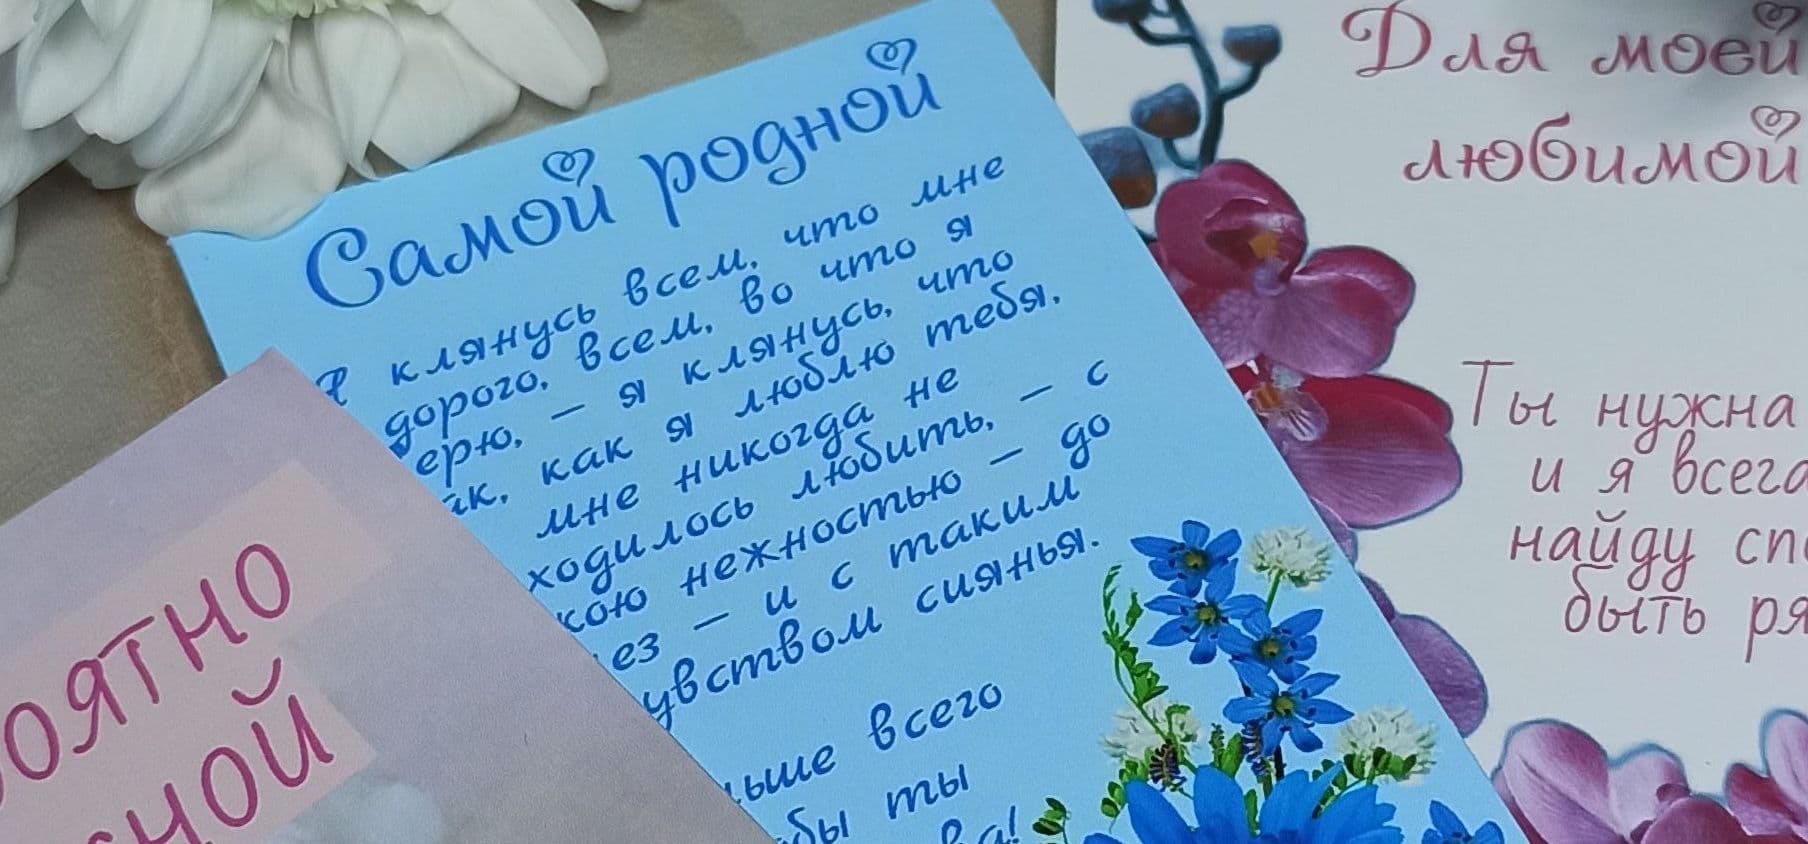 Самой родной
Я клянусь всем, что мне
дорого, всем, во что я
ерю, – я клянусь, что
ак, как я люблю тебя,
мне никогда не
ходилось любить, – с
кою нежностью – до
ез – и с таким
увством сиянья.
ьше всего
бы ты
ва!
Для моей
любимой
Ты нужна
и я всег
найду сп
быть ря
оятно
сной